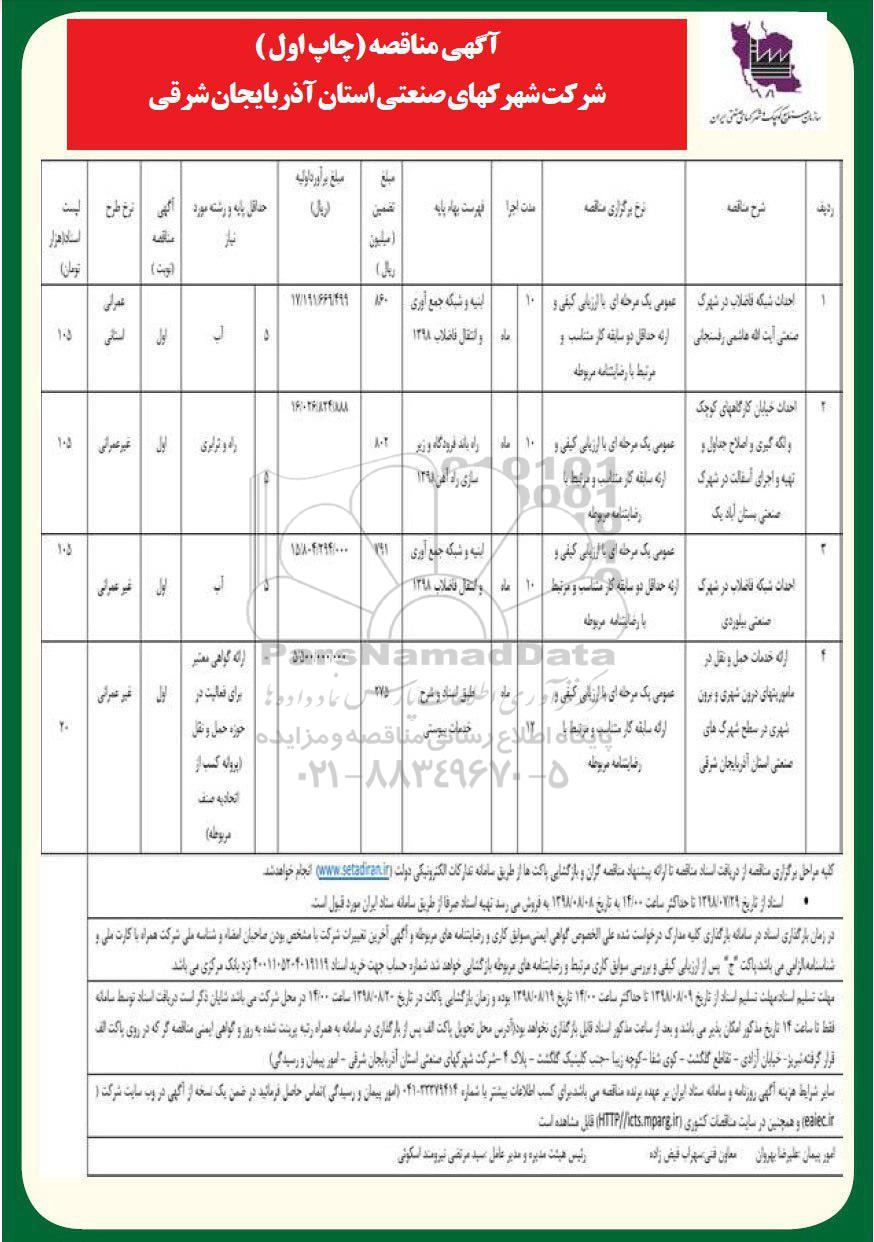 آگهی مناقصه (چاپ اول)
شرکت شهرکهای صنعتی استان آذربایجان شرقی
سازمان صنایع کوچک و شهرکهای صنعتی ایران
ردیف شرح مناقصه نرخ برگزاری مناقصه مدت اجرا فهرست بهاء پایه مبلغ تضمین (میلیون ریال) مبلغ برآورد اولیه (ریال) حداقل پایه و رشته مورد نیاز آگهی مناقصه (نوبت) نرخ طرح لیست اسناد(هزار تومان)
۱ احداث شبکه فاضلاب در شهرک صنعتی آیت الله هاشمی رفسنجانی عمومی یک مرحله ای با ارزیابی کیفی و ارئه حداقل دو سابقه کار متناسب و مرتبط با رضایتنامه مربوطه ۱۰ ماه ابنیه و شبکه جمع آوری و انتقال فاضلاب ۱۳۹۸ ۸۶۰ ۱۷/۱۹۱/۶۶۹/۴۹۹ ۵ آب اول عمرانی استانی ۱۰۵
۲ احداث خیابان کارگاههای کوچک و لکه گیری و اصلاح جداول و تهیه و اجرای آسفالت در شهرک صنعتی بستان آباد یک عمومی یک مرحله ای با ارزیابی کیفی و ارئه سابقه کار متناسب و مرتبط با رضایتنامه مربوطه ۱۰ ماه راه باند فرودگاه و زیر سازی راه آهن ۱۳۹۸ ۸۰۲ ۱۶/۰۲۶/۸۲۴/۸۸۸ ۵ راه و ترابری اول غیرعمرانی ۱۰۵
۳ احداث شبکه فاضلاب در شهرک صنعتی بیلوردی عمومی یک مرحله ای با ارزیابی کیفی و ارئه حداقل دو سابقه کار متناسب و مرتبط با رضایتنامه مربوطه ۱۰ ماه ابنیه و شبکه جمع آوری و انتقال فاضلاب ۱۳۹۸ ۷۹۱ ۱۵/۸۰۴/۲۹۴/۰۰۰ ۵ آب اول غیر عمرانی ۱۰۵
۴ ارائه خدمات حمل و نقل در ماموریتهای درون شهری و برون شهری در سطح شهرک های صنعتی استان آذربایجان شرقی عمومی یک مرحله ای با ارزیابی کیفی و ارائه سابقه کار متناسب و مرتبط با رضایتنامه مربوطه ۱۲ ماه طبق اسناد و شرح خدمات پیوستی ۲۷۵ ۵/۵۰۰/۰۰۰/۰۰۰ - ارائه گواهی معتبر برای فعالیت در حوزه حمل و نقل (پروانه کسب از اتحادیه صنف مربوطه) اول غیر عمرانی ۲۰
ParsNamadData
پایگاه اطلاع رسانی مناقصه و مزایده
۰۲۱-۸۸۳۴۹۶۷۰-۵
کلیه مراحل برگزاری مناقصه از دریافت اسناد مناقصه تا ارائه پیشنهاد مناقصه گران و بازگشایی پاکت ها از طریق سامانه تدارکات الکترونیکی دولت (www.setadiran.ir) انجام خواهدشد.
• اسناد از تاریخ ۱۳۹۸/۰۷/۲۹ تا حداکثر ساعت ۱۴/۰۰ به تاریخ ۱۳۹۸/۰۸/۰۸ به فروش می رسد تهیه اسناد صرفا از طریق سامانه ستاد ایران مورد قبول است.
در زمان بارگذاری اسناد در سامانه بارگذاری کلیه مدارک درخواست شده علی الخصوص گواهی ایمنی،سوابق کاری و رضایتنامه های مربوطه و آگهی آخرین تغییرات شرکت با مشخص بودن صاحبان امضاء و شناسه ملی شرکت همراه با کارت ملی و
شناسنامه،الزامی می باشد،پاکت "ج" پس از ارزیابی کیفی و بررسی سوابق کاری مرتبط و رضایتنامه های مربوطه بازگشایی خواهد شد شماره حساب جهت خرید اسناد ۴۰۰۱۱۰۵۲۰۴۰۱۹۱۱۹ نزد بانک مرکزی می باشد.
مهلت تسلیم اسناد:مهلت تسلیم اسناد از تاریخ ۱۳۹۸/۰۸/۰۹ تا حداکثر ساعت ۱۴/۰۰ تاریخ ۱۳۹۸/۰۸/۱۹ بوده و زمان بازگشایی پاکات در تاریخ ۱۳۹۸/۰۸/۲۰ ساعت ۱۴/۰۰ در محل شرکت می باشد شایان ذکر است دریافت اسناد توسط سامانه
فقط تا ساعت ۱۴ تاریخ مذکور امکان پذیر می باشد و بعد از ساعت مذکور اسناد قابل بارگذاری نخواهد بود(آدرس محل تحویل پاکت الف پس از بارگذاری در سامانه به همراه رتبه پرینت شده به روز و گواهی ایمنی مناقصه گر که در روی پاکت الف
قرار گرفته:تبریز- خیابان آزادی – تقاطع گلگشت – کوی شفا –کوچه زیبا –جنب کلینیک گلگشت – پلاک ۴ –شرکت شهرکهای صنعتی استان آذربایجان شرقی – امور پیمان و رسیدگی)
سایر شرایط هزینه آگهی روزنامه و سامانه ستاد ایران بر عهده برنده مناقصه می باشد،برای کسب اطلاعات بیشتر با شماره ۳۳۳۷۹۴۱۴-۰۴۱ (امور پیمان و رسیدگی )تماس حاصل فرمائید در ضمن یک نسخه از آگهی در وب سایت شرکت (
eaiec.ir) و همچنین در سایت مناقصات کشوری (HTTP//icts.mparg.ir) قابل مشاهده است
امور پیمان :علیرضا بهروان معاون فنی:سهراب فیض زاده رئیس هیئت مدیره و مدیر عامل :سید مرتضی نیرومند اسکوئی